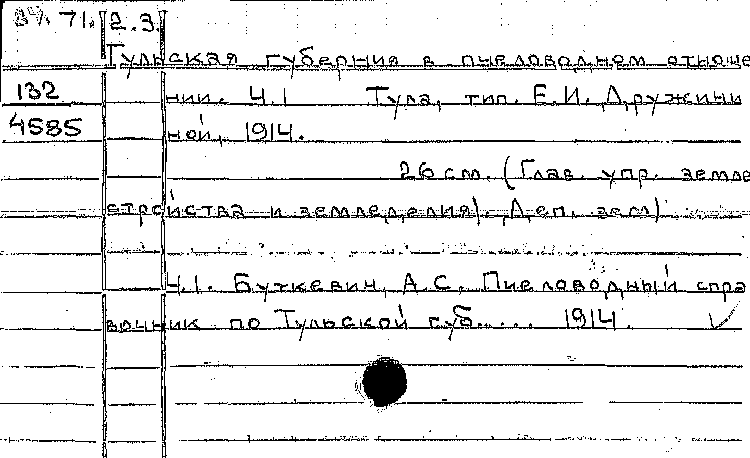 34. 71. 2.3.
Тульская губерния в пчеловодном отноше
132 нии. Ч.1 Тула, тип. Е.И. Дружини
4585 ной, 1914.
26 см. (Глав. упр. земле
стройства и земледелия). Деп. зем)
Ч.1. Буткевич, А.С. Пчеловодный спра
вочник по Тульской губ..... 1914.